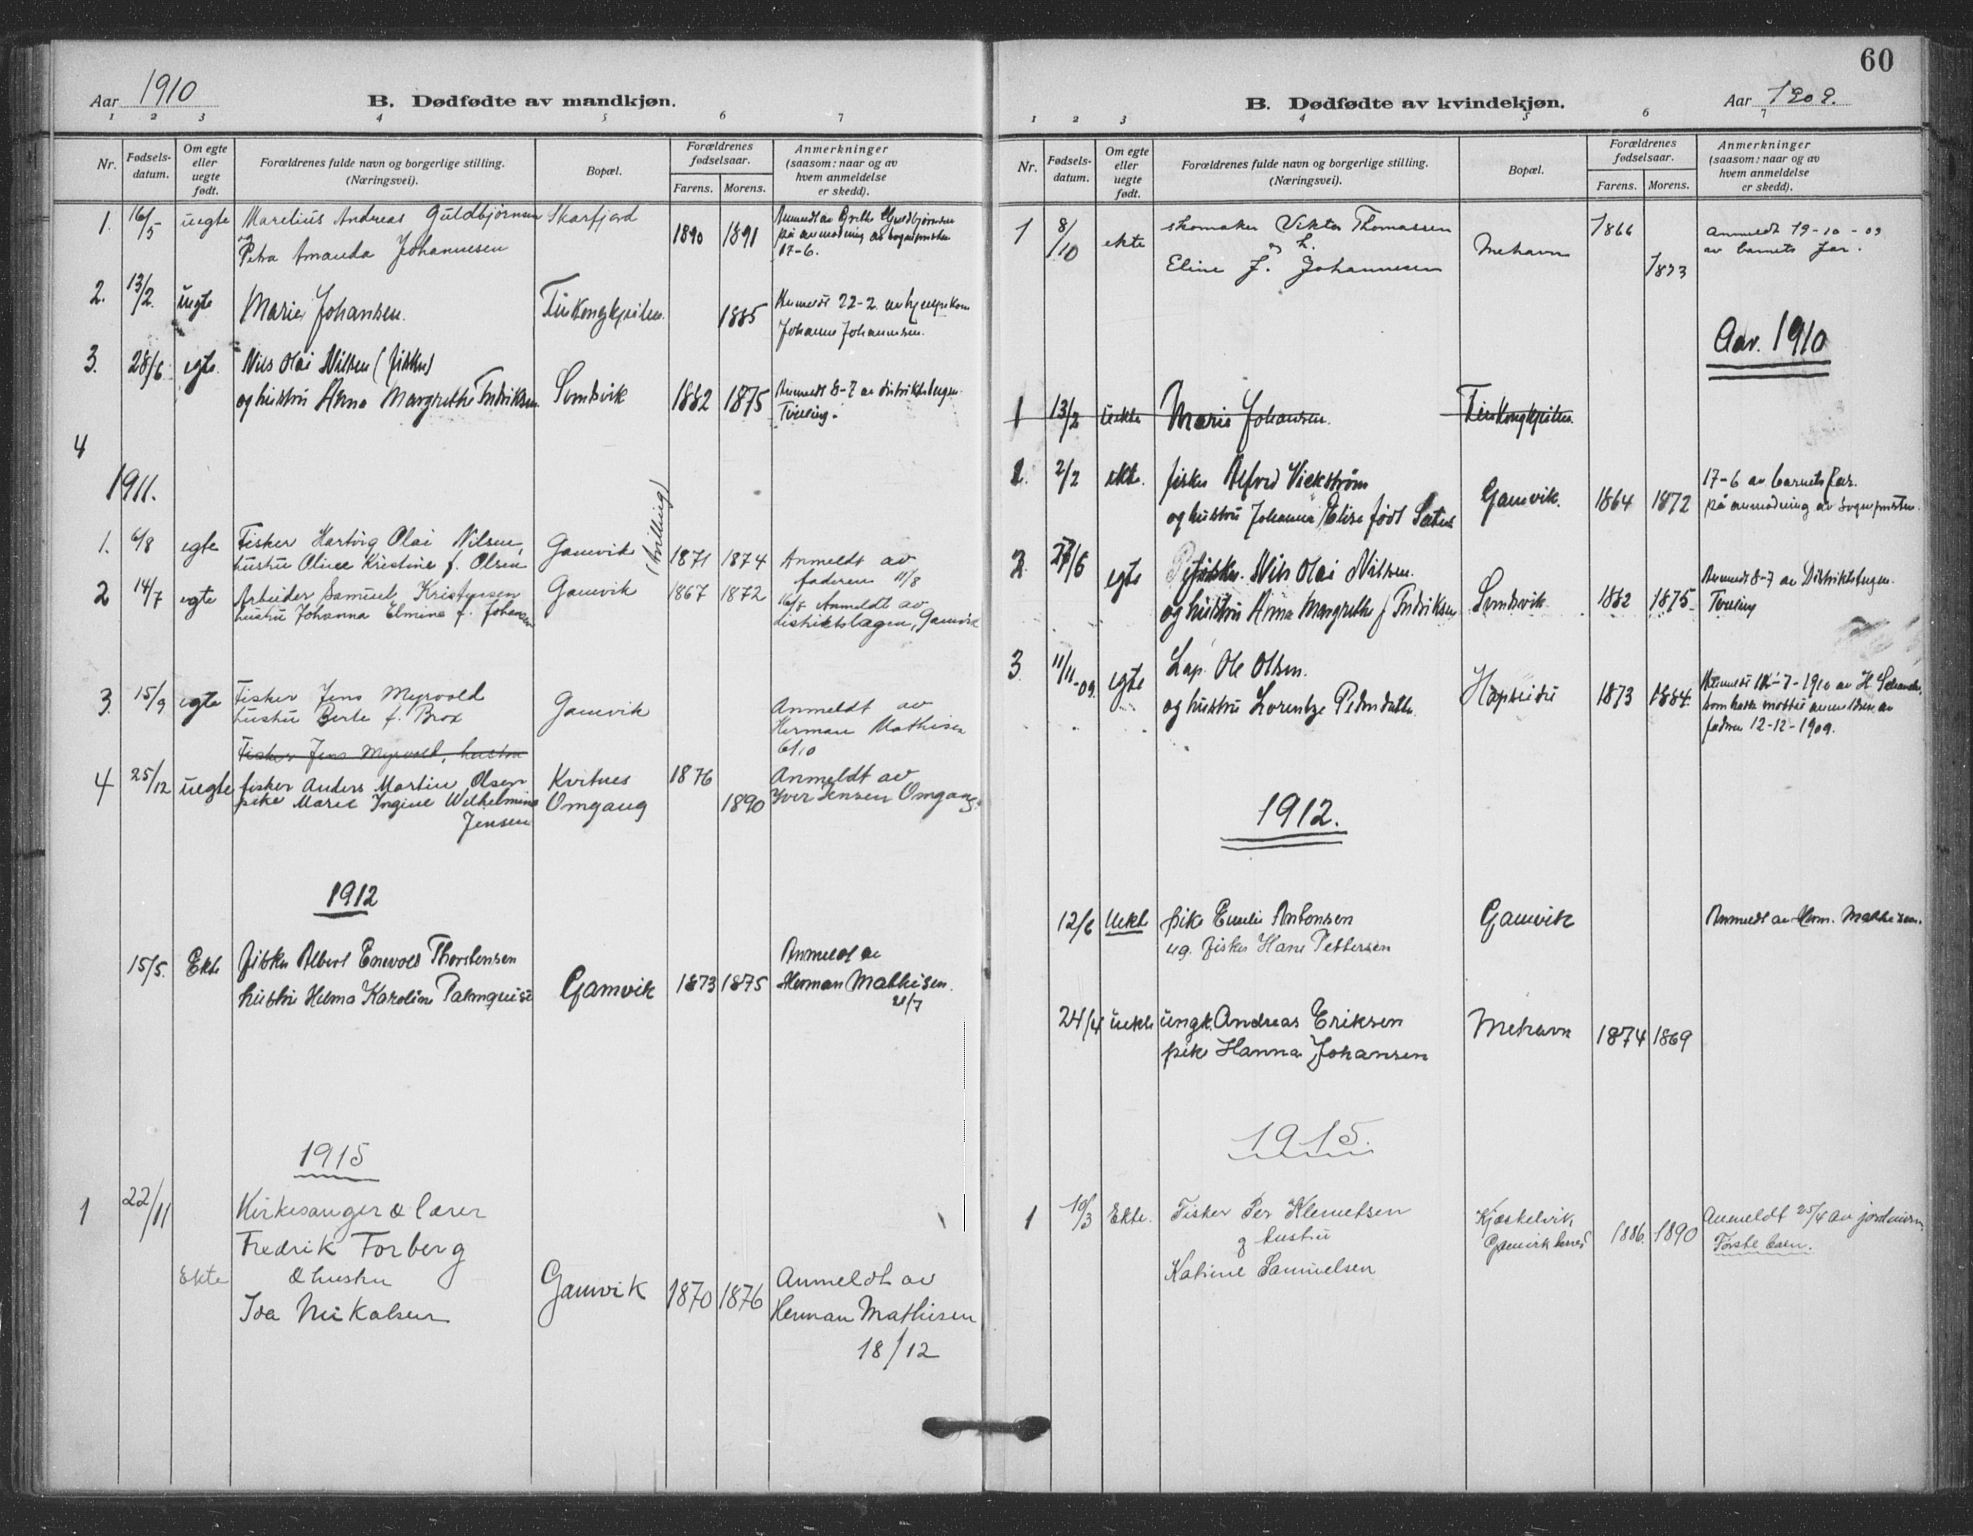 Aar 1910
B. Dødfødte av mandkjøn.
1 2 3 4 5 6 7
Nr. Fødsels-datum. Om egte eller uegte født. Forældrenes fulde navn og borgerlige stilling. (Næringsvei). Bopæl. Forældrenes fødselsaar. Farens. Morens. Anmerkninger (saasom: naar og av hvem anmeldelse er skedd).
1. 16/5 uegte Marelius Andreas Guldbjørnsen Skarfjord 1890 1891
på anmodning av sogneprosten
Petra Amanda Johannesen 17-6.
2. 13/2 uegte Marie Johansen. 1885 Anmeldt 22-2 av hjelpekone
Johanne Johannesen.
3. 28/6 egte. Nils Olai Nilsen (fisker)
og hustru Anna Margrethe Fredriksen Sundsvik 1882 1875 Anmeldt 8-7 av distriktslægen
4
1911.
(tvilling)
1. 6/8 egte Fisker Hartvig Olai Nilsen, Gamvik 1871 1874 Anmeldt av
hustru Oline Kristine f. Olsen faderen 11/8
2 14/7 egte Arbeider Samuel Kristensen Gamvik 1867 1872 16/8 Anmeldt av
hustru Johanna Elmine f. Johansen distriktslægen, Gamvik
3. 15/9 egte Fisker Jens Myrvold Gamvik Anmeldt av
hustru Berte f. Brox Herman Mathisen
6/10
Fisker Jens Myrvold, hustru
4 25/12 uegte fisker Anders Martin Olsen Kvitnes 1876 Anmeldt av
pike Marie Ingine Wilhelmine Omgang 1890 Iver Jensen Omgang.
Jensen
1912
15/5. Ekte fisker Albert Enevold Thorstensen Anmeldt av
hustru Helma Karoline Palmquist Gamvik 1873 1875 Herman Mathisen.
21/7
1915
1 22/11 Kirkesanger & lærer
Fredrik Forberg
Ekte & hustru Gamvik 1870 1876 Anmeldt av
Ida Nikalsen Herman Mathisen
18/12
60
B. Dødfødte av kvindekjøn.
Aar 1909.
1 2 3 4 5 6 7
Nr. Fødsels-datum. Om egte eller uegte født. Forældrenes fulde navn og borgerlige stilling. (Næringsvei). Bopæl. Forældrenes fødselsaar. Farens. Morens. Anmerkninger (saasom: naar og av hvem anmeldelse er skedd).
1 8/10 ekte Skomaker Viktor Thomassen Mehavn 1866 Anmeldt 19-10-09
av barnets far.
Eline J. Johannesen 1873
Aar. 1910
1 13/2 uekte Marie Johansen.
2/2 ekte. fisker Alfred Vickstrøm Gamvik. 1864 1872 17-6 av barnets far.
og hustru Johanna Elise født på anmodning av sogneprosten.
2. 27/6 egte fisker. Nils Olai Nilsen. Anmeldt 8-7 av Distriktslægen.
og hustru Anna Margrethe f Fredriksen Sundsvik 1882 1875
3 11/11-09. egte Lap. Ole Olsen. 1873 1884. 1910 av
og hustru Lorentze Pedersdatter som hadde mottat anmeldelsen av
fadren 12-12-1909.
1912.
12/6 Uekte pike Emelie Antonsen Gamvik Anmeldt av Herm. Mathisen.
ug. fisker Hans Pettersen
24/4 uekte ungk. Andreas Eriksen Mehavn 1874 1869
pike Hanna Johansen
1915.
1 10/3 Ekte. Fisker Per Klemetsen 1886. 1890 Anmeldt 25/4 av jordmoren,
& hustru Første barn.
Katrine Samuelsen